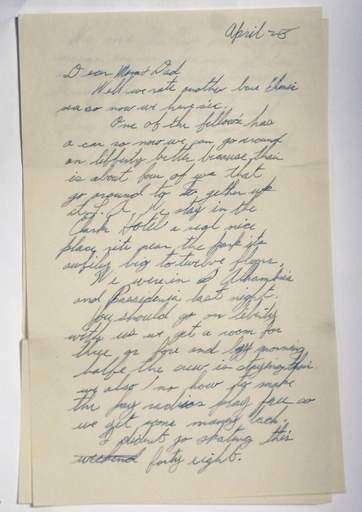 April 25
Dear Mom & Dad
Well we rate another base
so now we
One of the fellows has
a car so now we can go around
on liberty better because their
is about four of us that
go around to gether up
to L. A. We stay in the
Clark Hotel a real nice
place, rite near the park its
big to twelve floors.
We were in Alhambra
and last night.
You should go on liberty
with us we get a room for
three or five and by morning
halfe the crew is staying their
we also no how to make
the pay radios play free so
we get your money back.
I didnt go skating this
weekend forty eight.